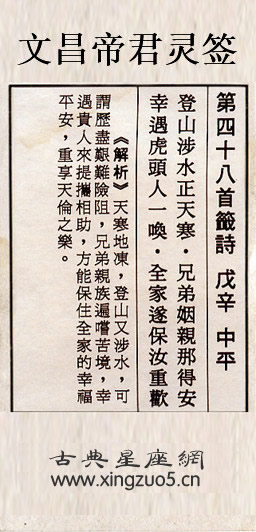 文昌帝君灵签
第四十八首籤詩 戊辛 中平
登山涉水正天寒·兄弟姻親那得安
幸遇虎頭人一喚·全家遂保汝重歡
《解析》天寒地凍，登山又涉水，可
謂歷盡艱難險阻，兄弟親族遍嚐苦境，幸
遇貴人來提攜相助，方能保住全家的幸福
平安，重享天倫之樂。
古典星座網
www.xingzuo5.cn